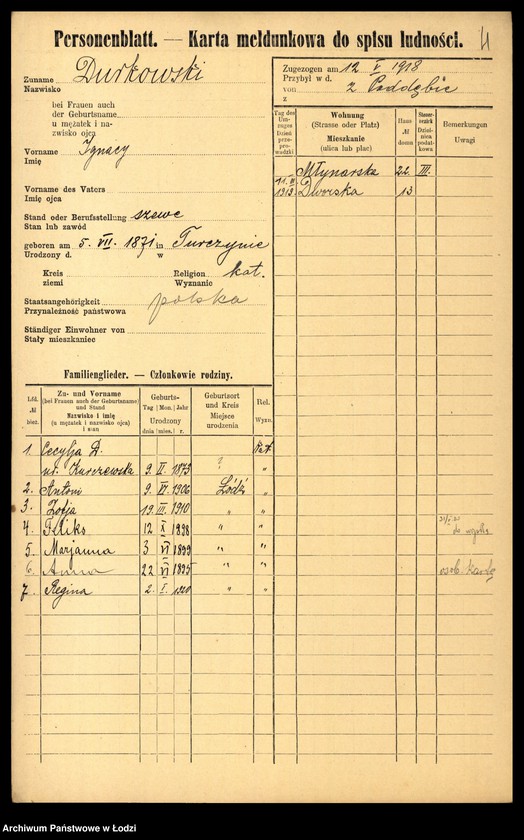 Personenblatt. — Karta meldunkowa do spisu ludności.
Zuname Durkowski
Nazwisko
bei Frauen auch
der Geburtsname
u mężatek i na-
zwisko ojca
Vorname Ignacy
Imię
Vorname des Vaters
Imię ojca
Stand oder Berufsstellung szewc
Stan lub zawód
geboren am 5. VII. 1871 in Turczynie
Urodzony d. w
Kreis Religion kat.
ziemi Wyznanie
Staatsangehörigkeit polska
Przynależność państwowa
Ständiger Einwohner von
Stały mieszkaniec
Zugezogen am 12 V 1918
Przybył w d.
von z Poddębic
z
Tag des Um-zuges Dzień prze-prowadzki
Wohnung (Strasse oder Platz) Mieszkanie (ulica lub plac)
Haus № domu
Steuer-bezirk Dziel-nica podat-kowa
Bemerkungen Uwagi
Młynarska 22 III.
11. II. 1913 Dworska 13
21/I 21 do
osob. Kartę
Familienglieder. — Członkowie rodziny.
Lfd. № bież.
Zu- und Vorname (bei Frauen auch der Geburtsname) und Stand Nazwisko i imię (u mężatek i nazwisko ojca) i stan
Geburts- Tag Mon Jahr Urodzony dnia mies. r.
Geburtsort und Kreis Miejsce urodzenia
Rel. Wyzn.
1. Cecylja D. kat.
ur. Kurczewska 9. II. 1873 ? "
2. Antoni 9. VI. 1906 Łódź "
3. Zofja 19. III. 1910 " "
4. Feliks 12 X 1898 " "
5. Marjanna 3 VI 1899 " "
6. Anna 22 VI 1895 " "
7. Regina 2. I. 1920 " "
Archiwum Państwowe w Łodzi